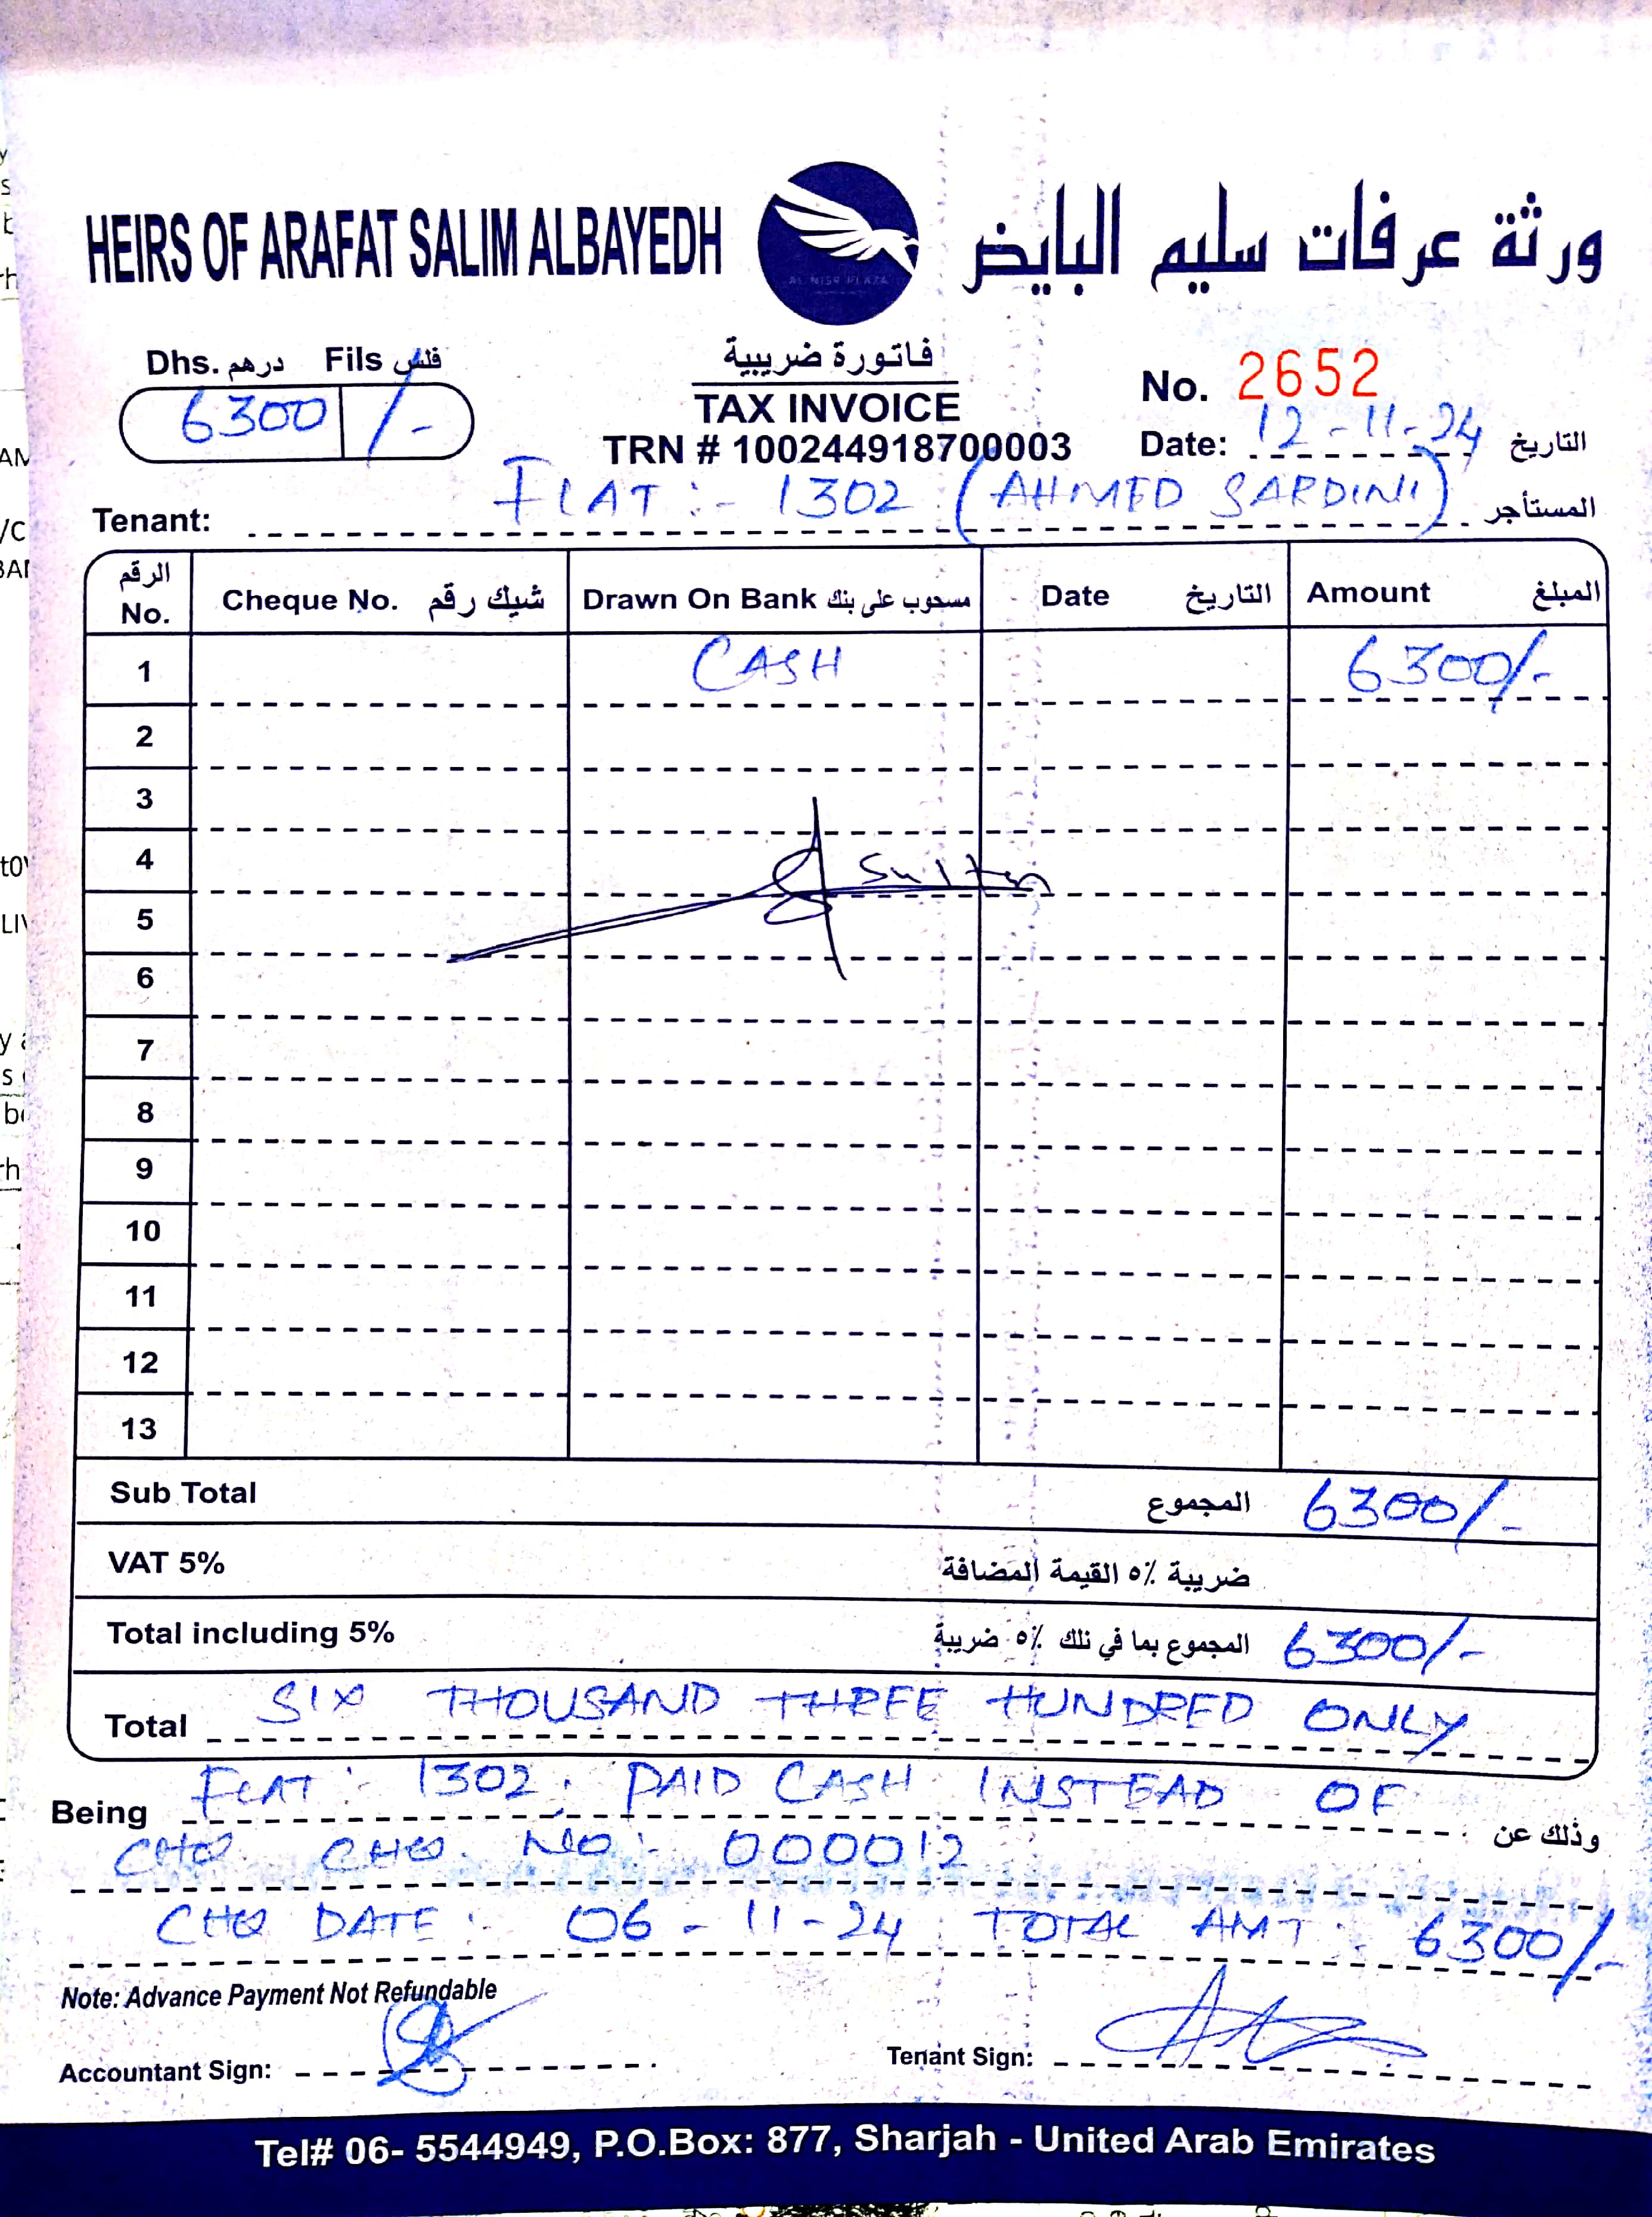 HEIRS OF ARAFAT SALIM ALBAYEDH
ورثة عرفات سليم البايض
AL NISR PLAZA
Dhs. درهم Fils فلس
6300 /-
فاتورة ضريبية
TAX INVOICE
TRN # 100244918700003
No. 2652
Date: 12-11-24 التاريخ
Tenant: FLAT :- 1302 (AHMED SARDINI) المستأجر
الرقم No. Cheque No. شيك رقم Drawn On Bank مسحوب على بنك Date التاريخ Amount المبلغ
1 CASH 6300/-
2
3
4 Sultan
5
6
7
8
9
10
11
12
13
Sub Total المجموع 6300/-
VAT 5% ضريبة ٥٪ القيمة المضافة
Total including 5% المجموع بما في ذلك ٥٪ ضريبة 6300/-
Total SIX THOUSAND THREE HUNDRED ONLY
Being FLAT: 1302. PAID CASH INSTEAD OF وذلك عن
CHQ. CHQ. NO:- 000012
CHQ DATE: 06-11-24 TOTAL AMT: 6300/-
Note: Advance Payment Not Refundable
Accountant Sign:
Tenant Sign:
Tel# 06- 5544949, P.O.Box: 877, Sharjah - United Arab Emirates